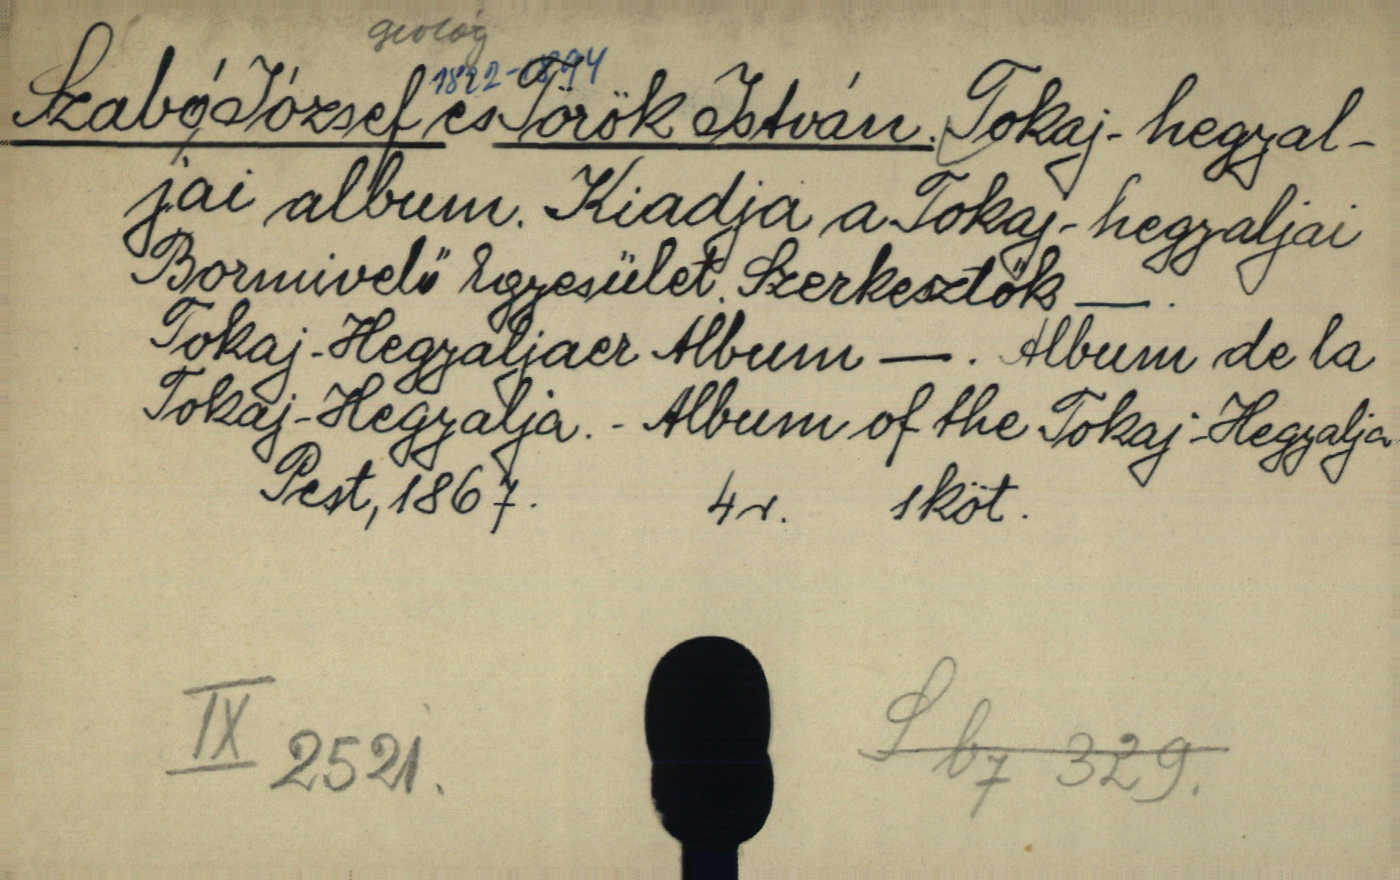 geológ
1822-1894
Szabó József és Török István. Tokaj-hegyal-
jai album. Kiadja a Tokaj-hegyaljai
Bormivelő Egyesület. Szerkesztők —.
Tokaj-Hegyaljaer Album —. Album de la
Tokaj-Hegyalja. - Album of the Tokaj-Hegyalja
Pest, 1867. 4r. 1 köt.
IX 2521.
L b7 329.